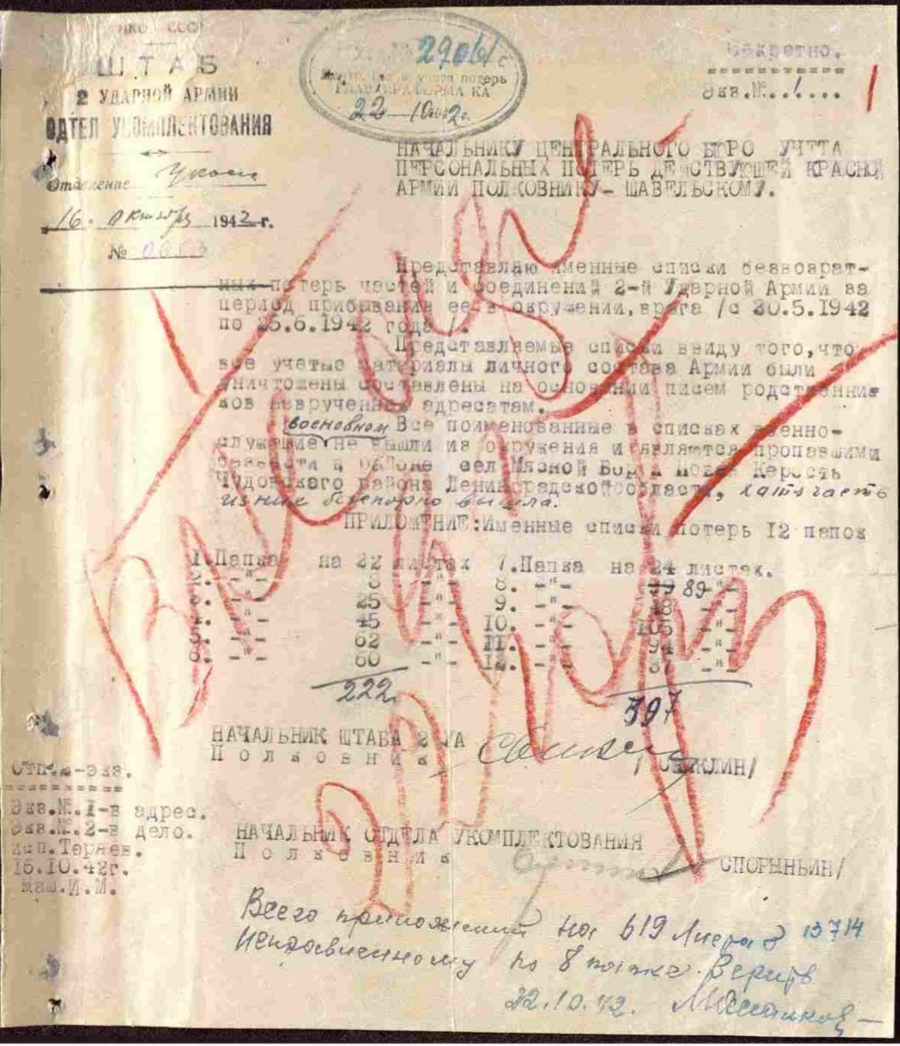 НКО СССР
ШТАБ
2 УДАРНОЙ АРМИИ
ОТДЕЛ УКОМПЛЕКТОВАНИЯ
Отделение
16. Октября 1942 г.
№
2906 с
22 10 2г.
Секретно.
Экз.№..1....
НАЧАЛЬНИКУ ЦЕНТРАЛЬНОГО БЮРО УЧЕТА
ПЕРСОНАЛЬНЫХ ПОТЕРЬ ДЕЙСТВУЮЩЕЙ КРАСНОЙ
АРМИИ ПОЛКОВНИКУ- ШАВЕЛЬСКОМУ.
Представляю именные списки безвозврат-
ных потерь частей и соединений 2-й Ударной Армии за
период прибывания ее в окружении, врага /с 30.5.1942
по 25.6.1942 года/.
Представляемые списки ввиду того, что
все учетные материалы личного состава Армии были
уничтожены составлены на основании писем родственни-
ков неврученных адресатам.
восновном Все поименованные в списках военно-
служащие не вышли из окружения и являются пропавшими
безвести в районе сел Мясной Бор и Новая Кересть
Чудовского района Ленинградской области, хотя часть
из них бесспорно вышла.
ПРИЛОЖЕНИЕ: Именные списки потерь 12 папок
1. Папка на 22 листах 7. Папка на 24 листах.
-"- 8 -"- 8. -"- 89 -"-
-"- 25 -"- 9. -"- 18 -"-
-"- 45 -"- 10. -"- 105 -"-
-"- 62 -"- 11. -"- 94 -"-
-"- 60 -"- 12. -"-
222. 397
НАЧАЛЬНИК ШТАБА 2 УА
Полковник
НАЧАЛЬНИК ОТДЕЛА УКОМПЛЕКТОВАНИЯ
Полковник
СПОРЫНЬИН/
Отп.2-экз.
Экз.№.1-в адрес.
Экз.№.2-в дело.
исп.Теряев.
15.10.42г.
маш.И.М.
Всего приложений на 619 листах 13714
по 8 папке. Верить
22.10.42.